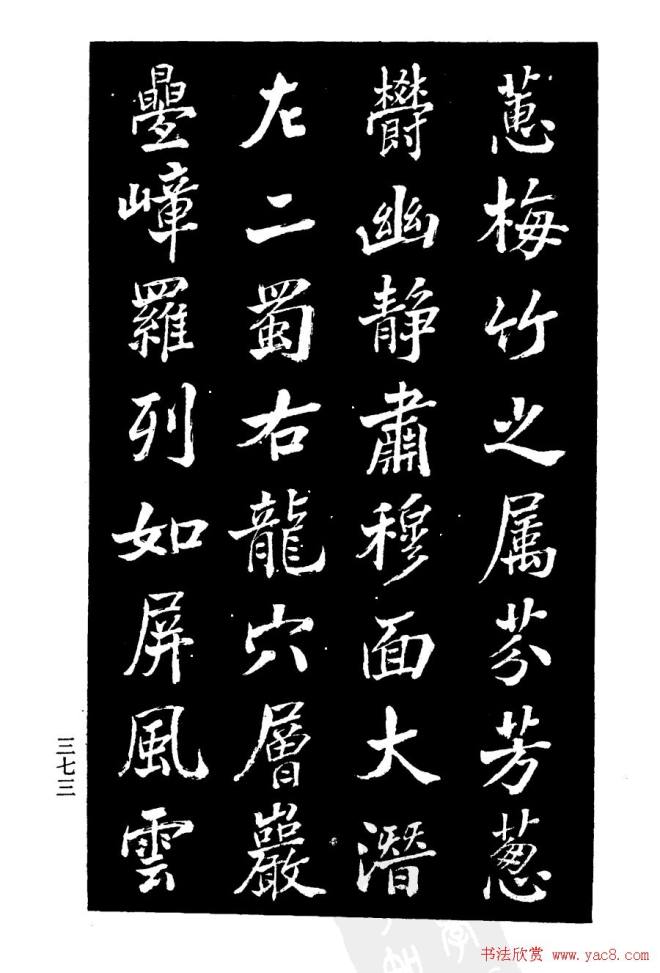 蕙梅竹之属芬芳葱
欝幽静肅穆面大潛
左二蜀右龍穴層巖
疊嶂羅列如屏風雲
三七三
书法欣赏 www.yac8.com